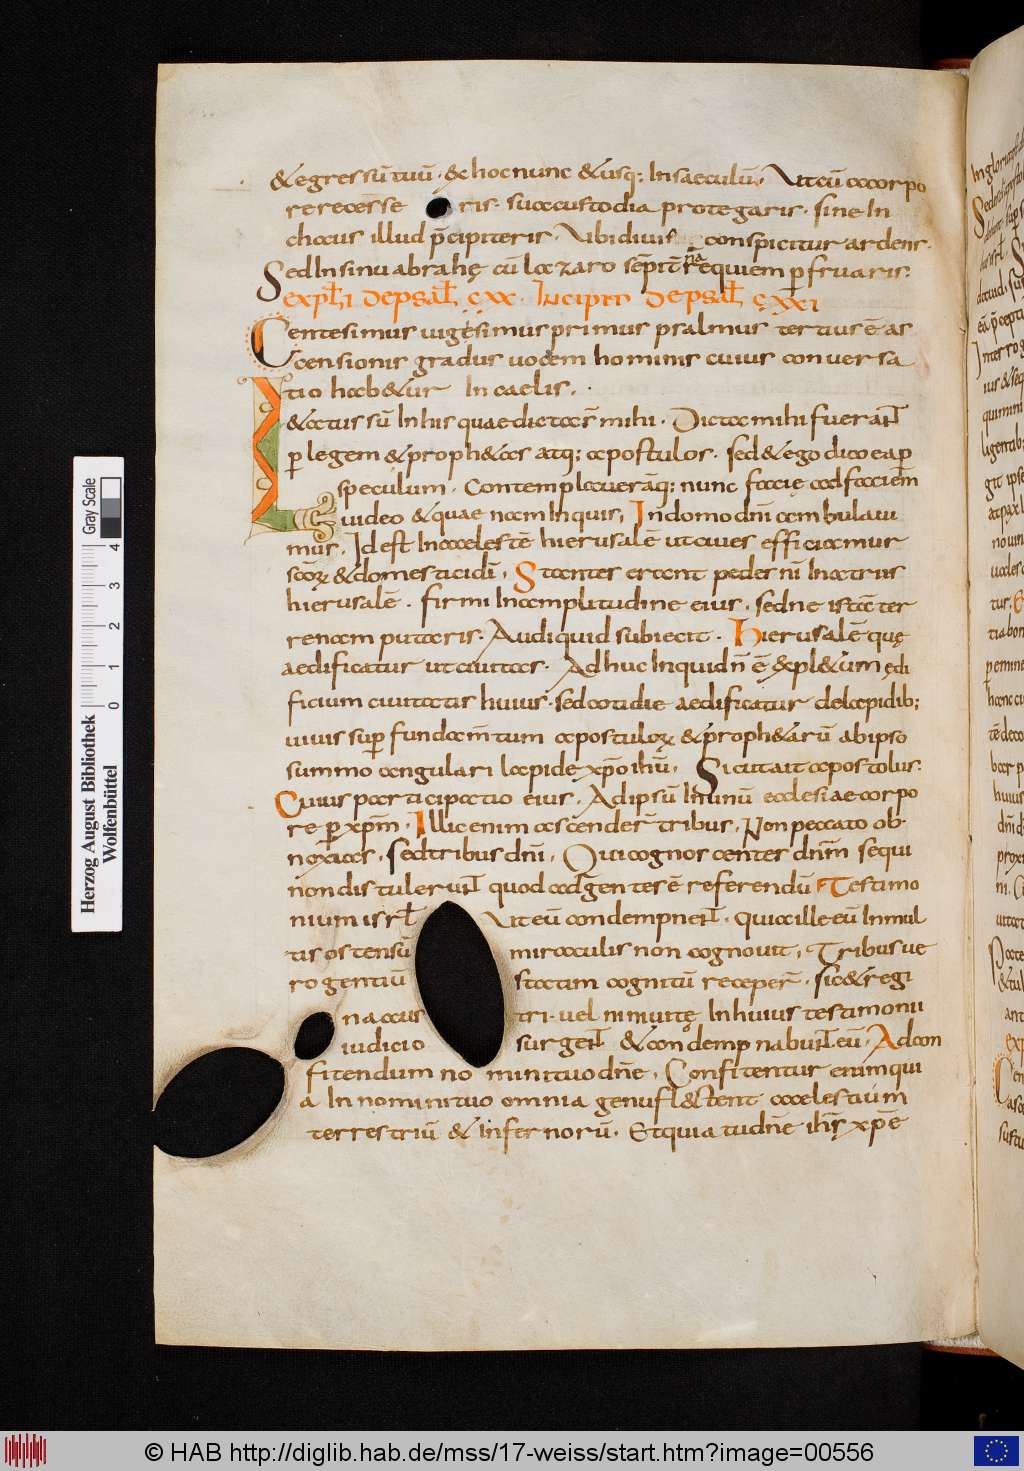 & egressū tuū · ex hoc nunc & usq; In saeculū, Ut cū a corpo
re recesse ris · sua custodia protegaris · sine In
chaus illud p̄cipiteris · Ubi diuis conspicitur ardens ·
Sed In sinu abrahę cū lazaro sēpit̄nā requiem p̱ fruaris:
expl̄ı de psal̄ · cxx · Incipit de psal̄ cxxı
Centesimus uigesimus primus psalmus tertius ē as
censionis gradus uocem hominis cuius conuersa
tio hab&ur In caelis ·
L
&atus sū In his quae dicta sr̄ mihi · Dicta mihi fuerāt
p̱ legem & proph&as atq; apostulos · sed & ego dico ea p̱
speculum · Contemplaueraq; nunc facię ad faciēm
uideo & quae nam Inquis, In domo dn̄i ambulaui
mus · Id est In caelestē hierusalē ut ciues efficiamur
sc̄orꝝ & domestici dī, Stantes erant pedes nr̄i In atriis
hierusalē · firmi In amplitudine eius · sed ne istā ter
renam putaris · Audi quid subiecit · Hierusalē quę
aedificatur ut ciuitas · Ad huc Inquid n̄ ē expl&um ędi
ficium ciuitatis huius · sed cotidie aedificatur de lapidib;
uiuis sup̱ fundam̄tum apostulorꝝ & proph&arū ab ipso
summo angulari lapide xp̄o ihū, Sicut ait apostolus:
Cuius participatio eius · Ad ipsū In unū ecclesiae corpo
re p̱ xp̄m · Illic enim ascender̄ tribus, Non peccato ob
noxias, sed tribus dn̄i, Qui cognoscentes dn̄m sequi
non distulerunt quod ad gentes ē referendū Testimo
nium isrl̄ Ut eū condempnet · Qui aille eū In mul
tis ostensū miraculis non cognouit, Tribus ue
ro gentiū statim cognitū receper̄ · sic & regi
na aus tri · uel niniuitę In huius testimonii
iudicio surgent & condempnabunt eū · Ad con
fitendum no mini tuo dn̄e, Confitentur enim qui
a In nomini tuo omnia genu fl&tent caelestium
terrestriū & Infernorū · Et quia tu dn̄e ihū xp̄e
Herzog August Bibliothek
Wolfenbüttel
0 1 2 3 4
Gray Scale
© HAB http://diglib.hab.de/mss/17-weiss/start.htm?image=00556